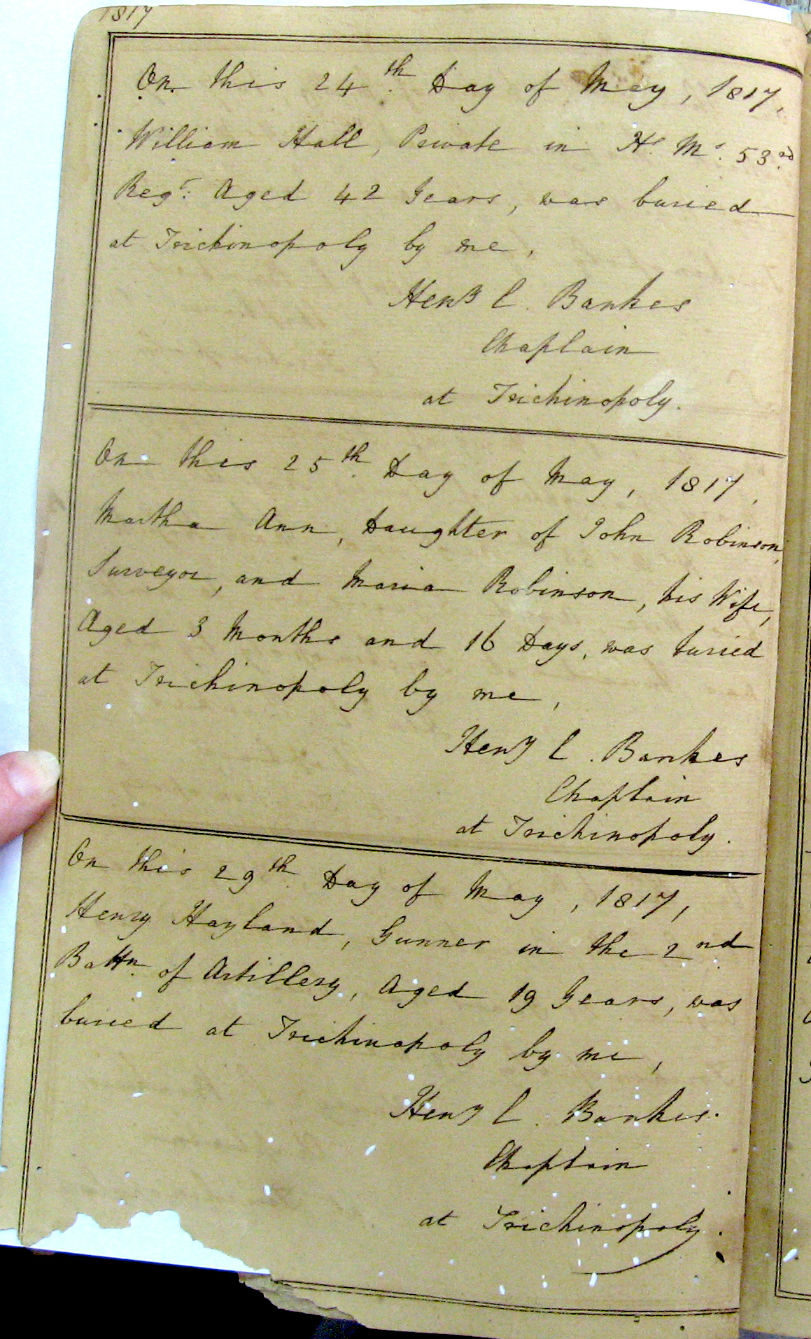 1817
On this 24th Day of May, 1817,
William Hall, Private in H.s M.s 53.rd
Reg.t Aged 42 Years, was buried
at Trichinopoly by me,
Heny C. Bankes
Chaplain
at Trichinopoly.
On this 25th Day of May, 1817,
Martha Ann, Daughter of John Robinson,
Surveyor, and Maria Robinson, his Wife,
Aged 3 Months and 16 Days, was buried
at Trichinopoly by me,
Heny C. Bankes
Chaplain
at Trichinopoly.
On this 29th Day of May, 1817,
Henry Hayland, Gunner in the 2nd
Battn of Artillery, Aged 19 Years, was
buried at Trichinopoly by me,
Heny C. Bankes.
Chaplain
at Trichinopoly.